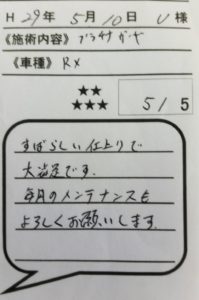 H 29年 5月 10日 U 様
《施術内容》
《車種》 RX
★★
★★★
5 / 5
すばらしい仕上りで
大満足です。
毎月のメンテナンスも
よろしくお願いします